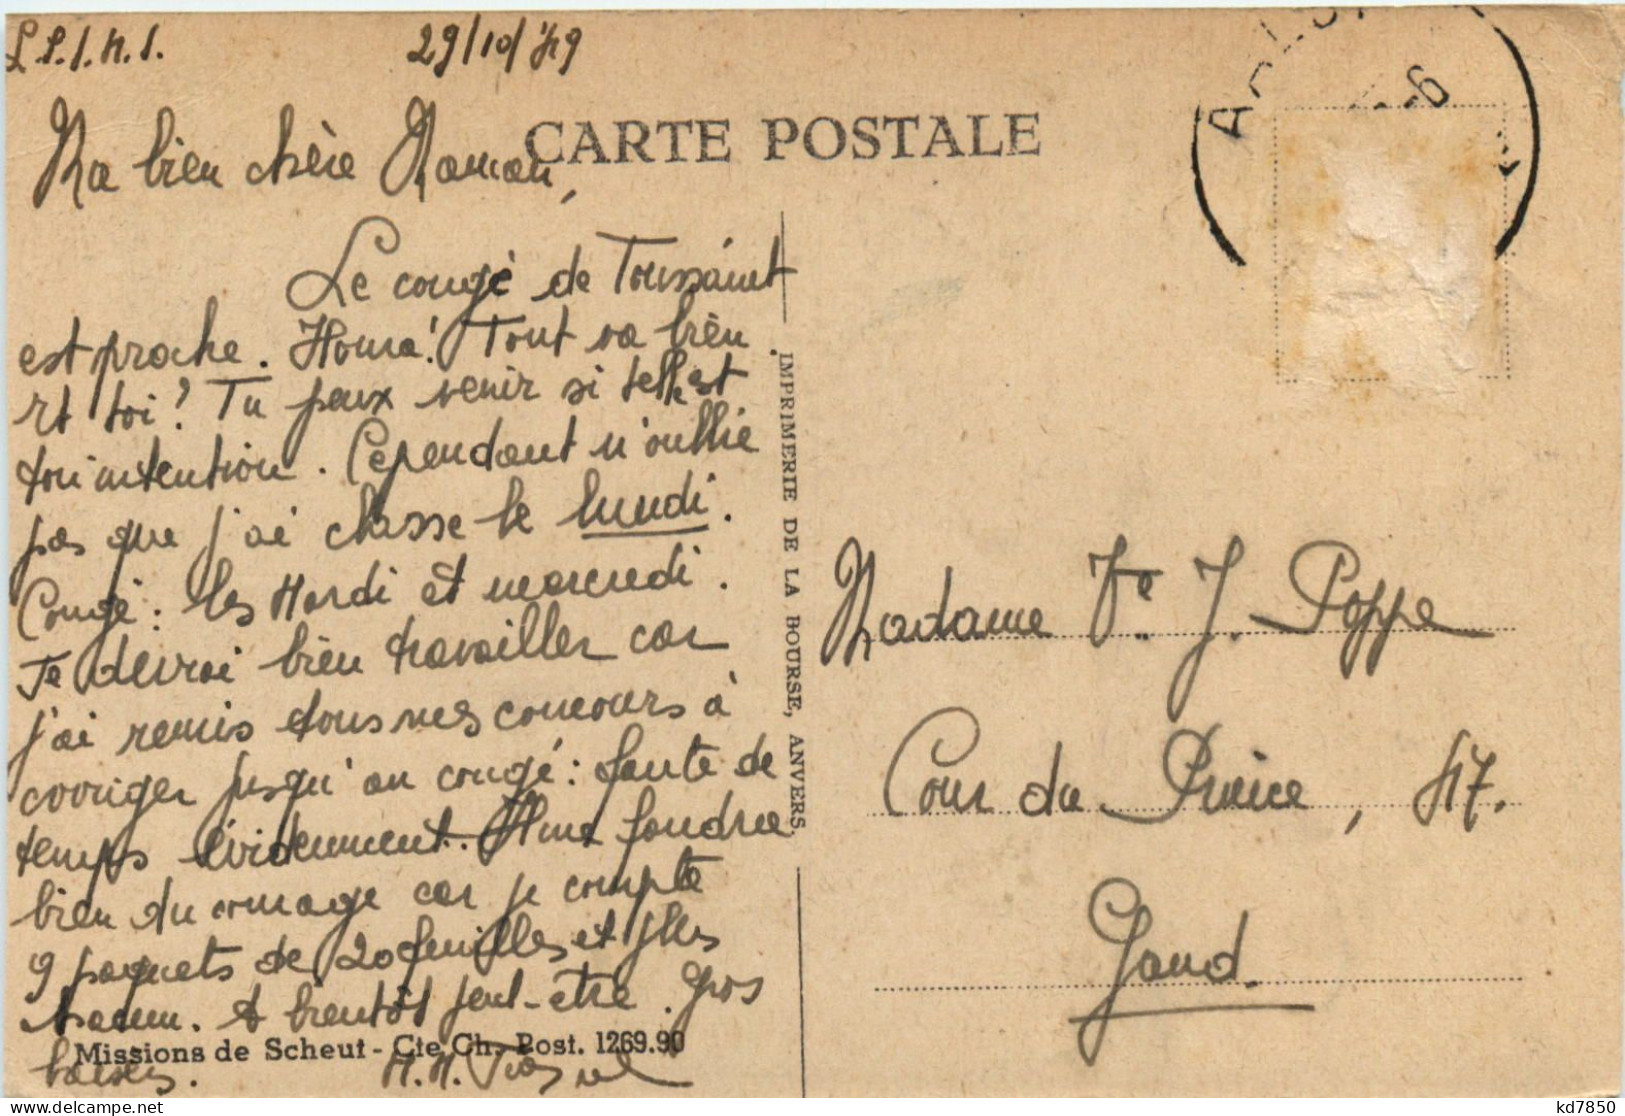 29/10/49
CARTE POSTALE
Ma bien chère Maman,
Le congé de Toussaint
est proche. Houra! Tout va bien
et toi? Tu peux venir si telle est
ton intention. Cependant n'oublie
pas que j'ai classe le lundi.
Congé: les Mardi et mercredi.
Je devrai bien travailler car
j'ai remis tous mes concours à
corriger jusqu'au congé: faute de
temps évidemment. Il me faudra
bien du courage car je compte
9 paquets de 20 feuilles et plus
chacun. A bientôt peut-être. Gros
baisers.
Missions de Scheut - Cte Ch. Post. 1269.90
IMPRIMERIE DE LA BOURSE, ANVERS.
Madame Ve. J. Poppe
Cour du Prince, 47.
Gand.
kd7850